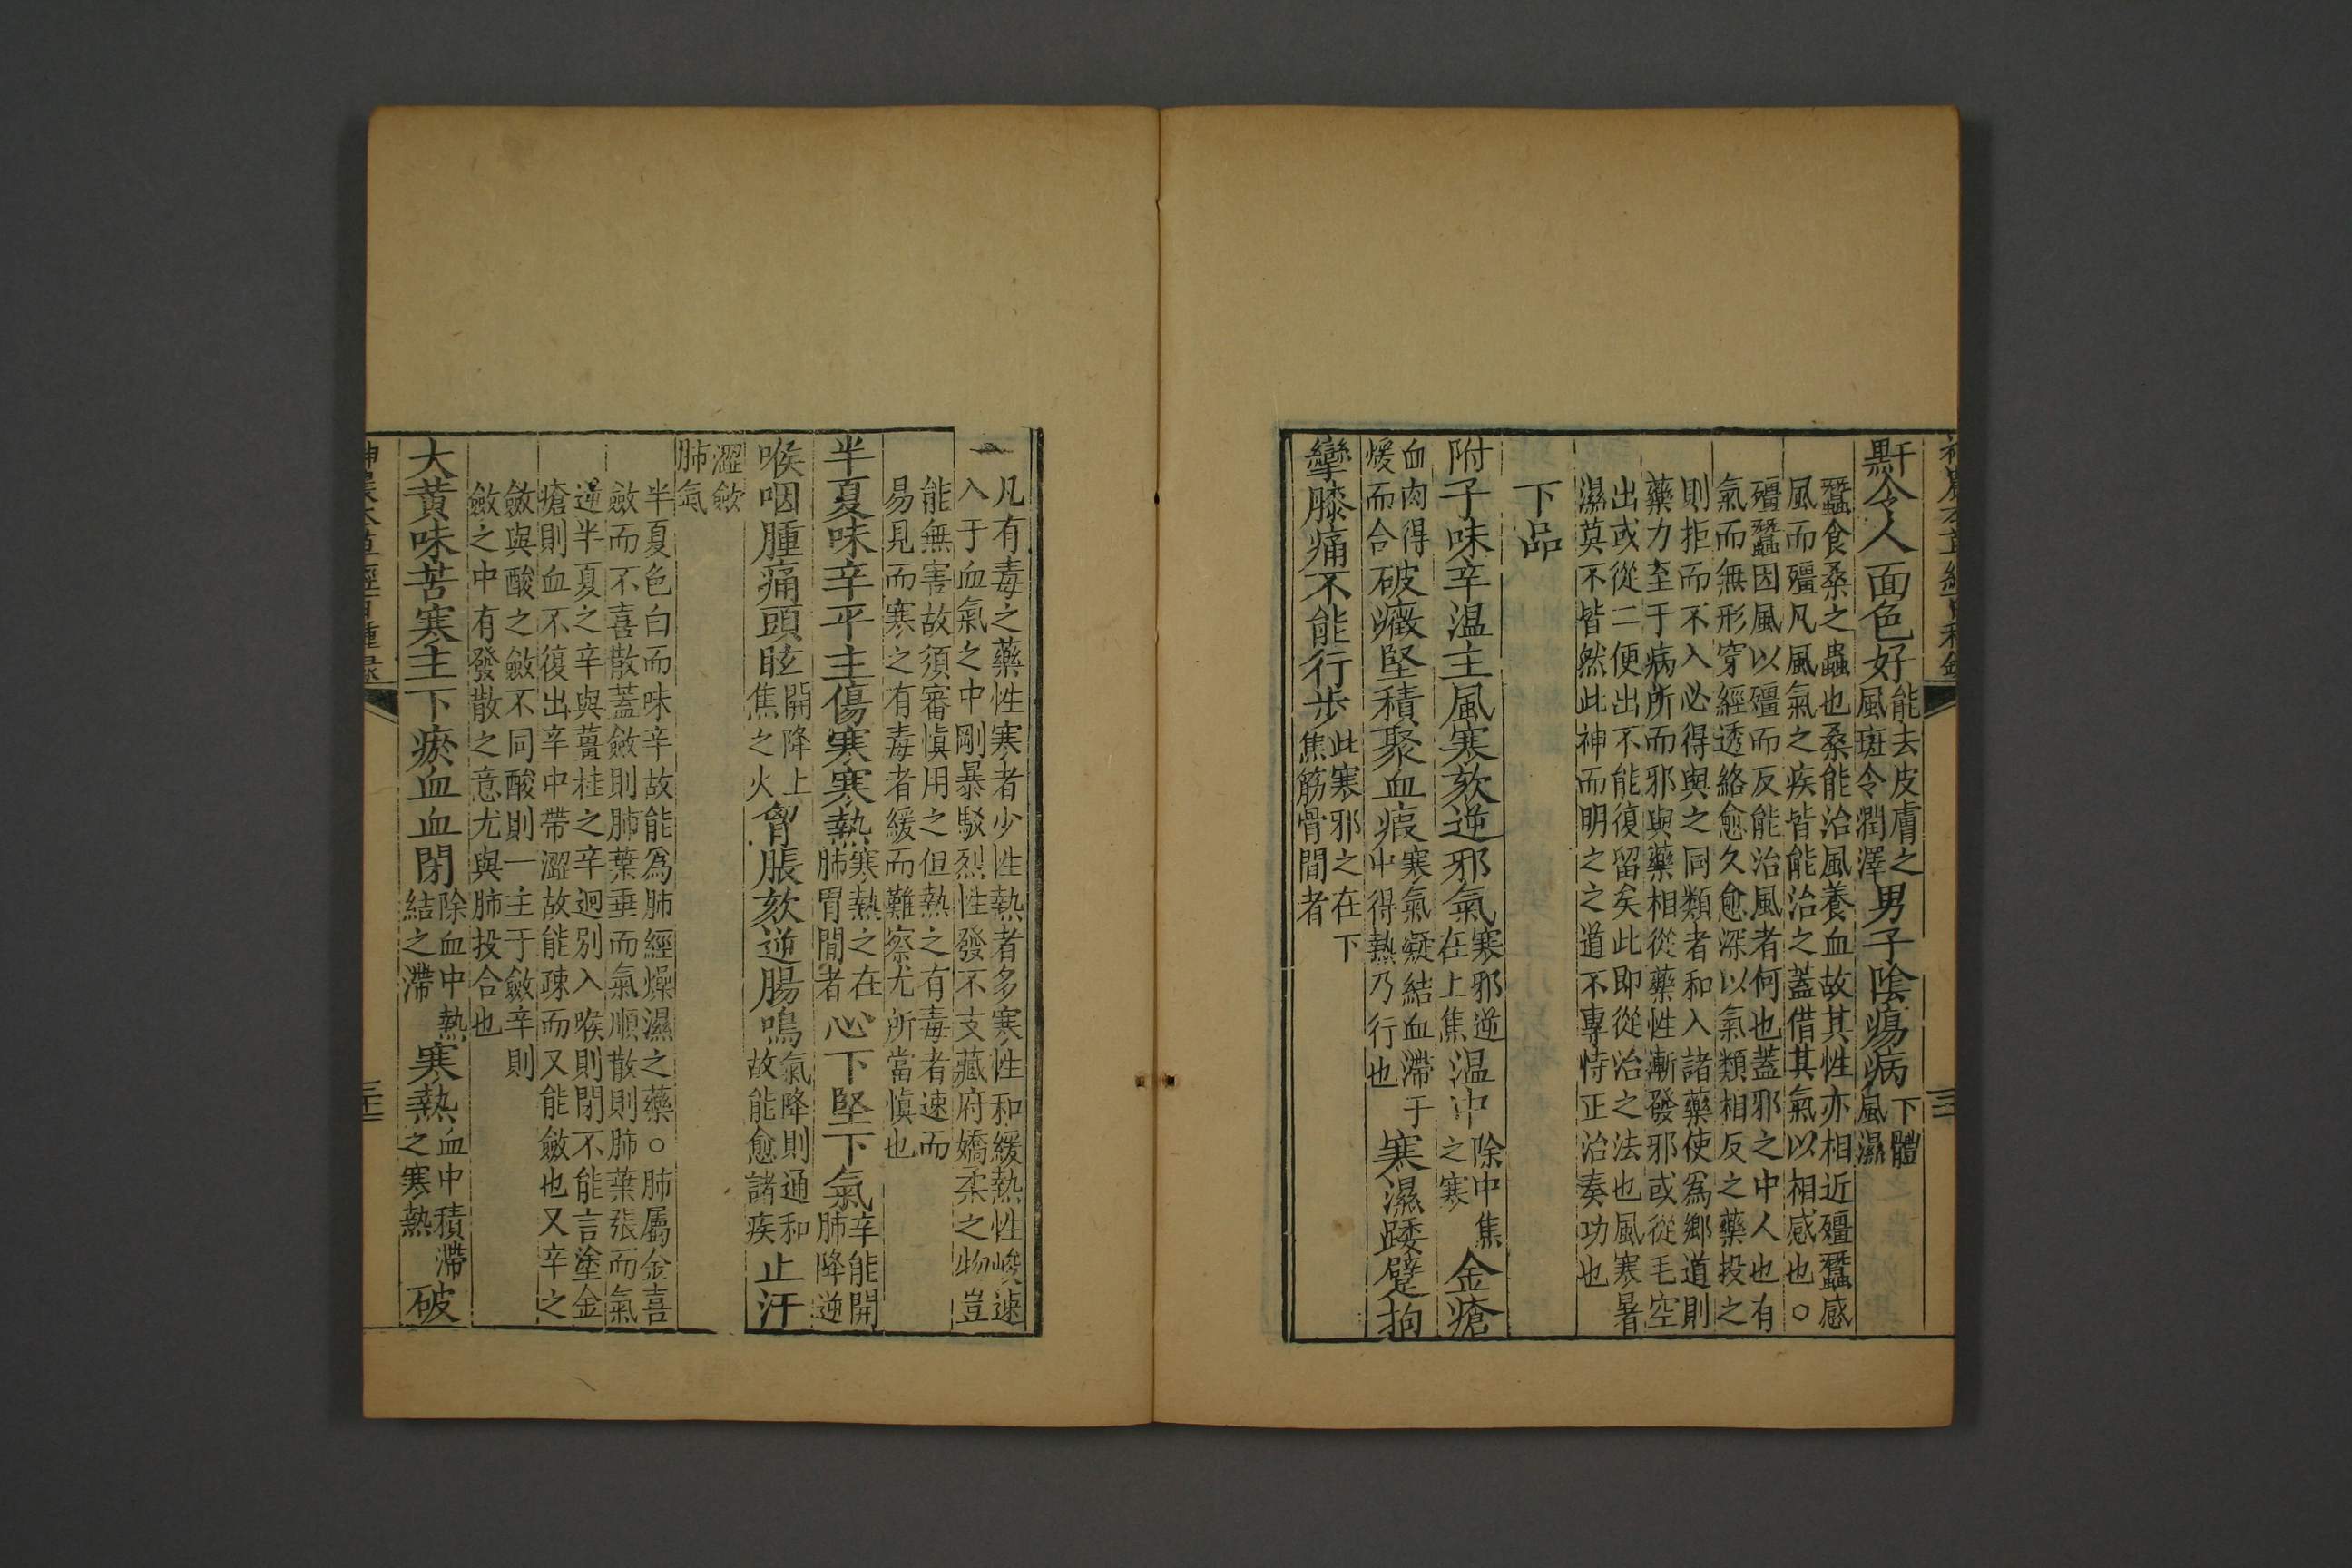 神農本草經百種錄
䵟令人面色好能去皮膚之風斑令潤澤男子陰瘍病下體風濕
蠶食桑之蟲也桑能治風養血故其性亦相近殭蠶感
風而殭凡風氣之疾皆能治之蓋借其氣以相感也○
殭蠶因風以殭而反能治風者何也蓋邪之中人也有
氣而無形穿經透絡愈久愈深以氣類相反之藥投之
則拒而不入必得與之同類者和入諸藥使爲鄉道則
藥力至于病所而邪與藥相從藥性漸發邪或從毛空
出或從二便出不能復留矣此即從治之法也風寒暑
濕莫不皆然此神而明之之道不專恃正治奏功也
下品
附子味辛温主風寒欬逆邪氣寒邪逆在上焦温中除中焦之寒金瘡
血肉得煖而合破癥堅積聚血瘕寒氣凝結血滯于中得熱乃行也寒濕踒躄拘
攣膝痛不能行步此寒邪之在下焦筋骨間者
凡有毒之藥性寒者少性熱者多寒性和緩熱性峻速
入于血氣之中剛暴駁烈性發不支藏府嬌柔之物豈
能無害故須審慎用之但熱之有毒者速而
易見而寒之有毒者緩而難察尤所當慎也
半夏味辛平主傷寒寒熱寒熱之在肺胃間者心下堅下氣辛能開肺降逆
喉咽腫痛頭眩開降上焦之火胷脹欬逆腸鳴氣降則通和故能愈諸疾止汗
澀斂肺氣
半夏色白而味辛故能爲肺經燥濕之藥○肺屬金喜
斂而不喜散蓋斂則肺葉垂而氣順散則肺葉張而氣
逆半夏之辛與薑桂之辛迥别入喉則閉不能言塗金
瘡則血不復出辛中帶澀故能疎而又能斂也又辛之
斂與酸之斂不同酸則一主于斂辛則
斂之中有發散之意尤與肺投合也
大黃味苦寒主下瘀血血閉除血中熱結之滯寒熱血中積滯之寒熱破
神農本草經百種錄